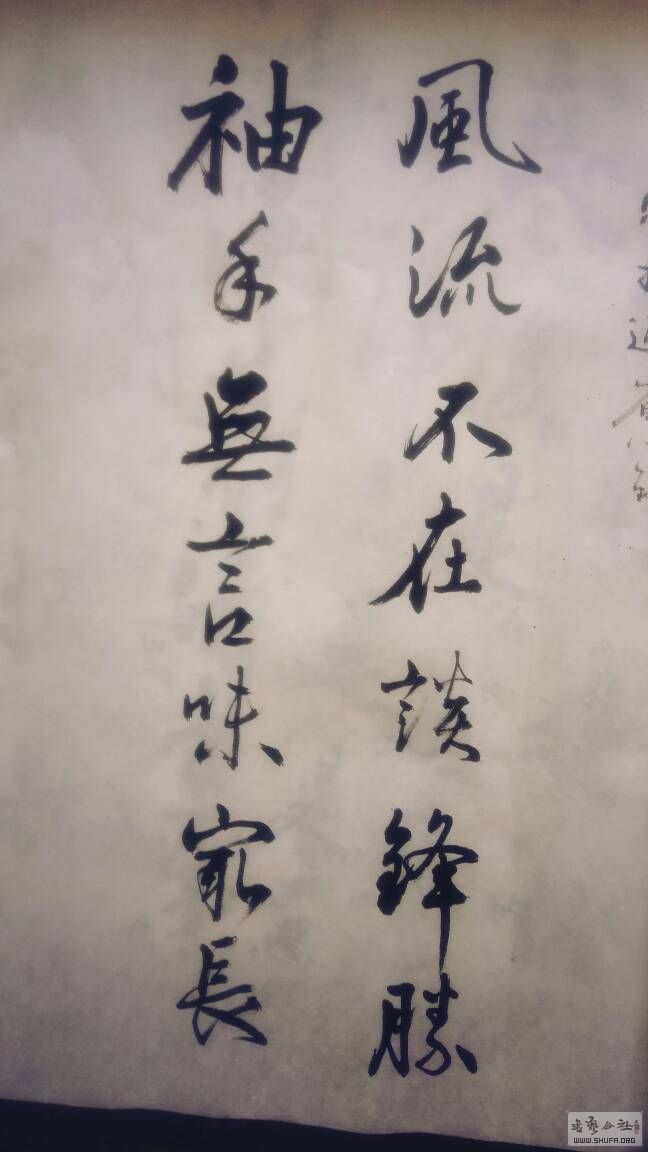 風流不在談鋒勝
袖手無言味寂長
书艺公社
WWW.SHUFA.ORG